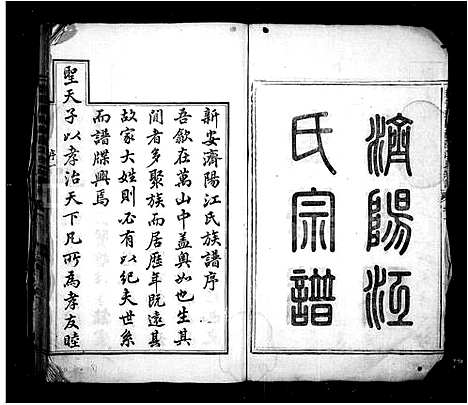 濟陽江
氏宗譜
新安濟陽江氏族譜序
吾歙在萬山中蓋奧如也生其
間者多聚族而居歷年既遠其
故家大姓則必有以紀夫世系
而譜牒興焉
聖天子以孝治天下凡所為孝友睦
序